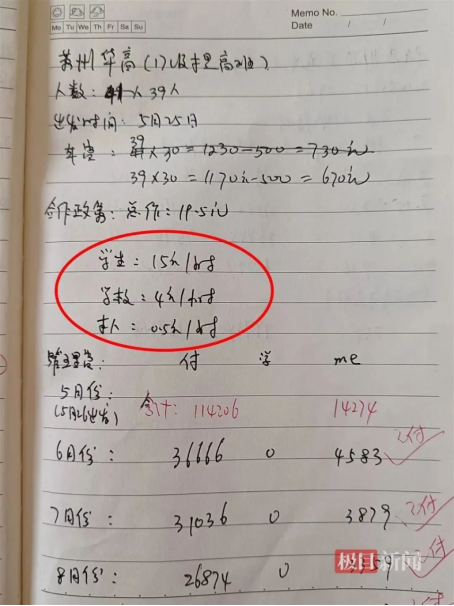 Memo No.
Mo Tu We Th Fr Sa Su
Date / /
苏州华高(17级提高班)
人数: 41人 39人
出发时间: 5月25日
车费: 39 41×30=1230-500=730元
39×30=1170元-500=670元
合作政策: 总价: 19.5元
学生: 15元/时
学校: 4元/时
本人: 0.5元/时
管理费: 付 学 me
5月份:
(5月26出发) 合计: 114206 14274
6月份: 36666 0 4583 已付
7月份: 31036 0 3879 已付
8月份: 26874 0 已付
极目新闻